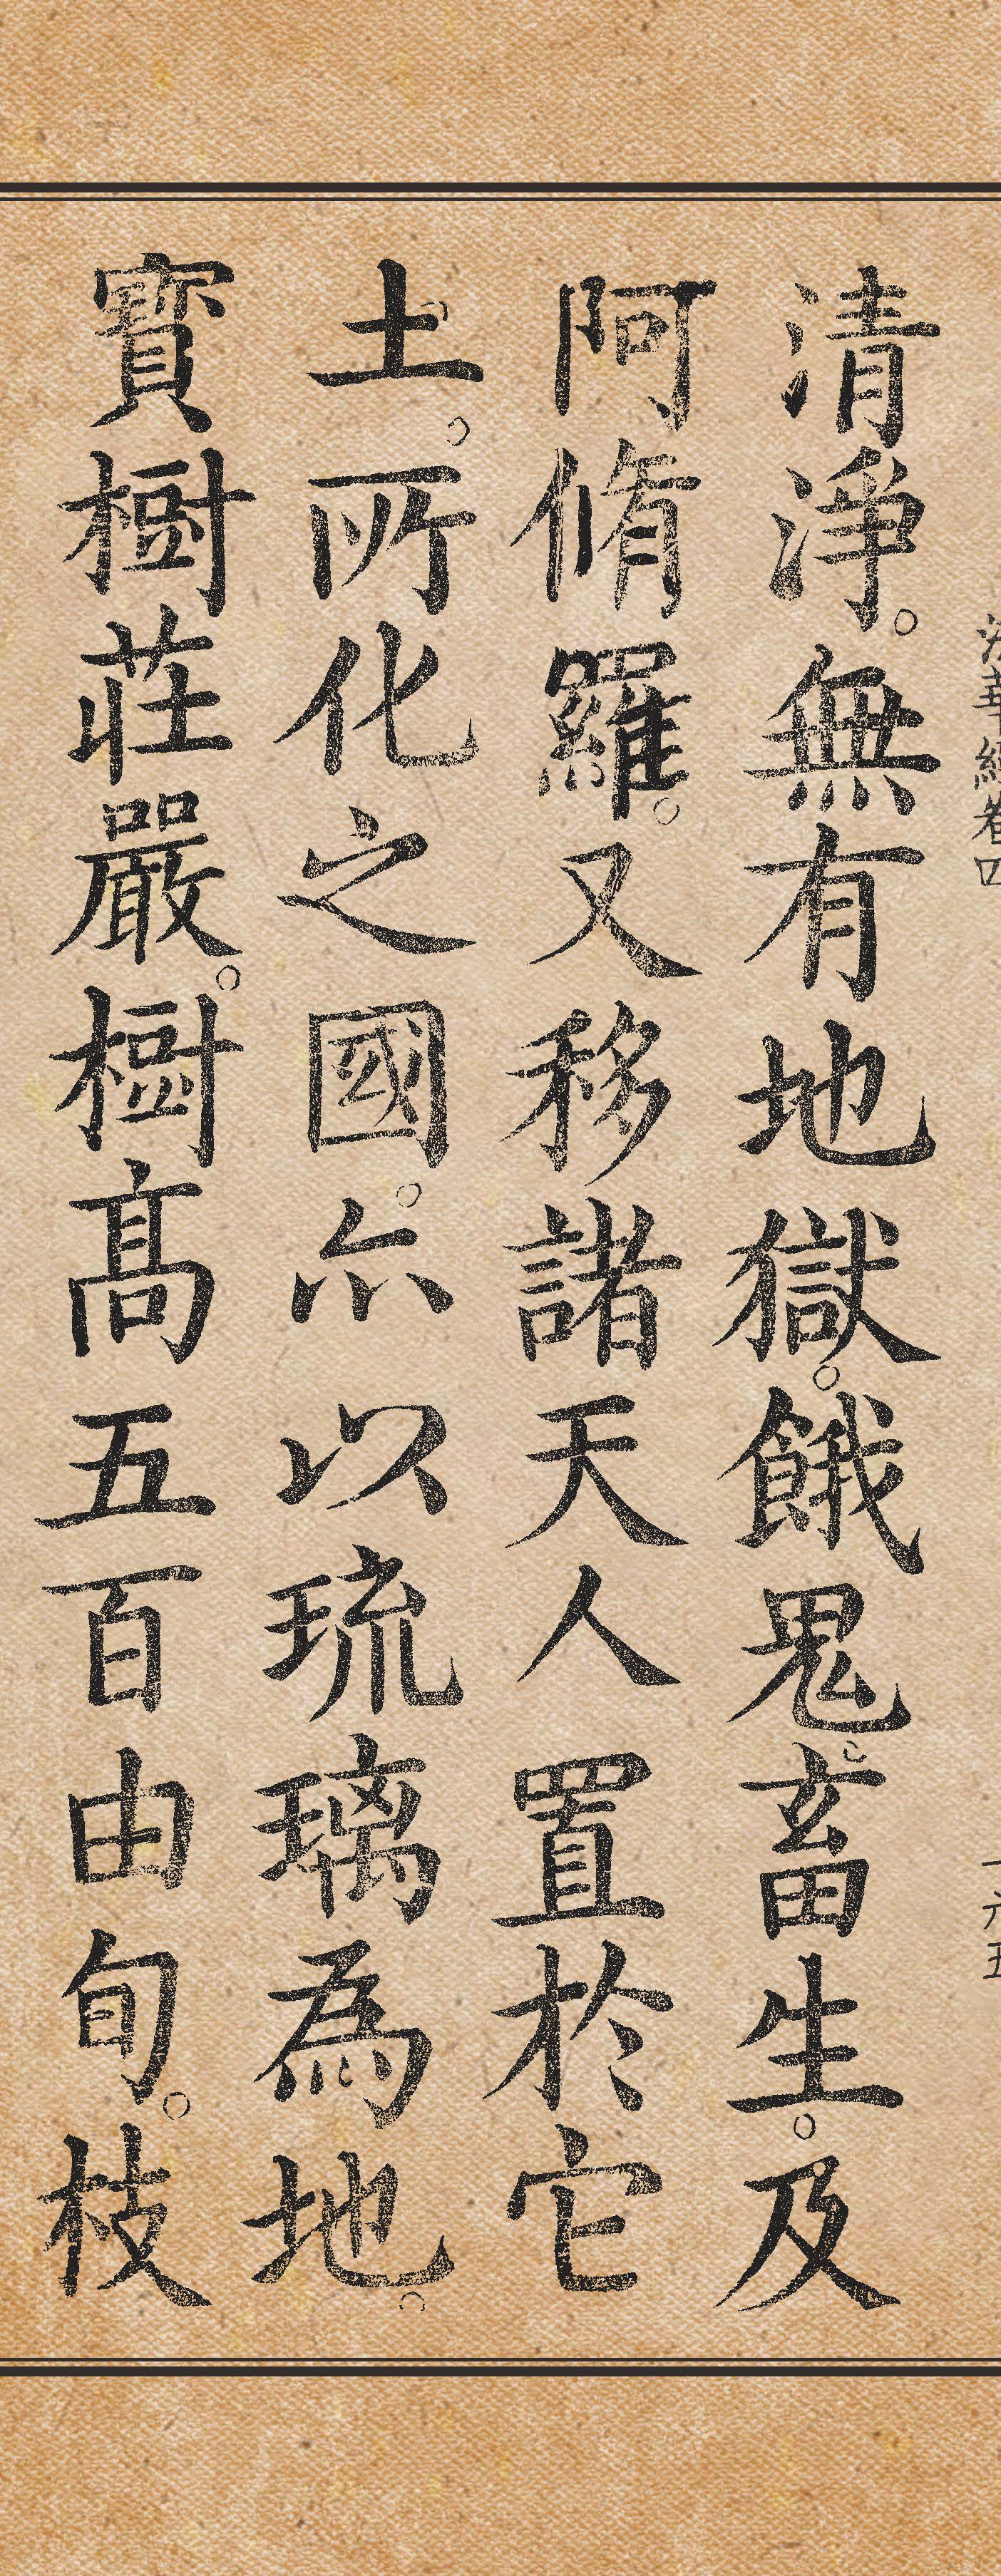 法華經卷四
一六五
清淨。無有地獄。餓鬼。畜生。及
阿脩羅。又移諸天人置於它
土。所化之國。亦以琉璃為地。
寶樹莊嚴。樹高五百由旬。枝